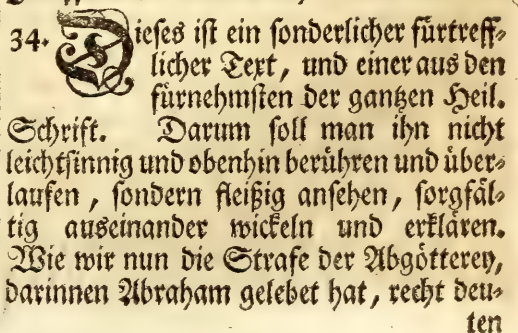 34. Dieses ist ein sonderlicher fürtreff-
licher Text, und einer aus den
fürnehmsten der gantzen Heil.
Schrift. Darum soll man ihn nicht
leichtsinnig und obenhin berühren und über-
laufen, sondern fleißig ansehen, sorgfäl-
tig auseinander wickeln und erklären.
Wie wir nun die Strafe der Abgötterey,
darinnen Abraham gelebet hat, recht deu-
ten